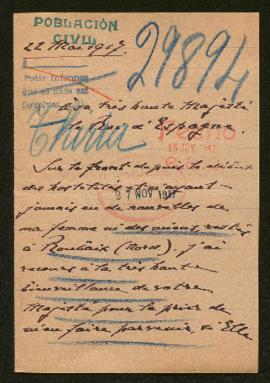 POBLACIÓN
CIVIL
22 Mai 1917.
29894
Pedir Informes
A sa très haute Majesté
le Roi d'Espagne.
Thiriu
Sur le front depuis le début
des hostilités et n'ayant
jamais eu de nouvelles de
ma femme
27 NOV 1917
à Roubaix (Nord), j'ai
recours à la très haute
bienveillance de votre
Majesté pour la prier de
m'en faire parvenir, si Elle